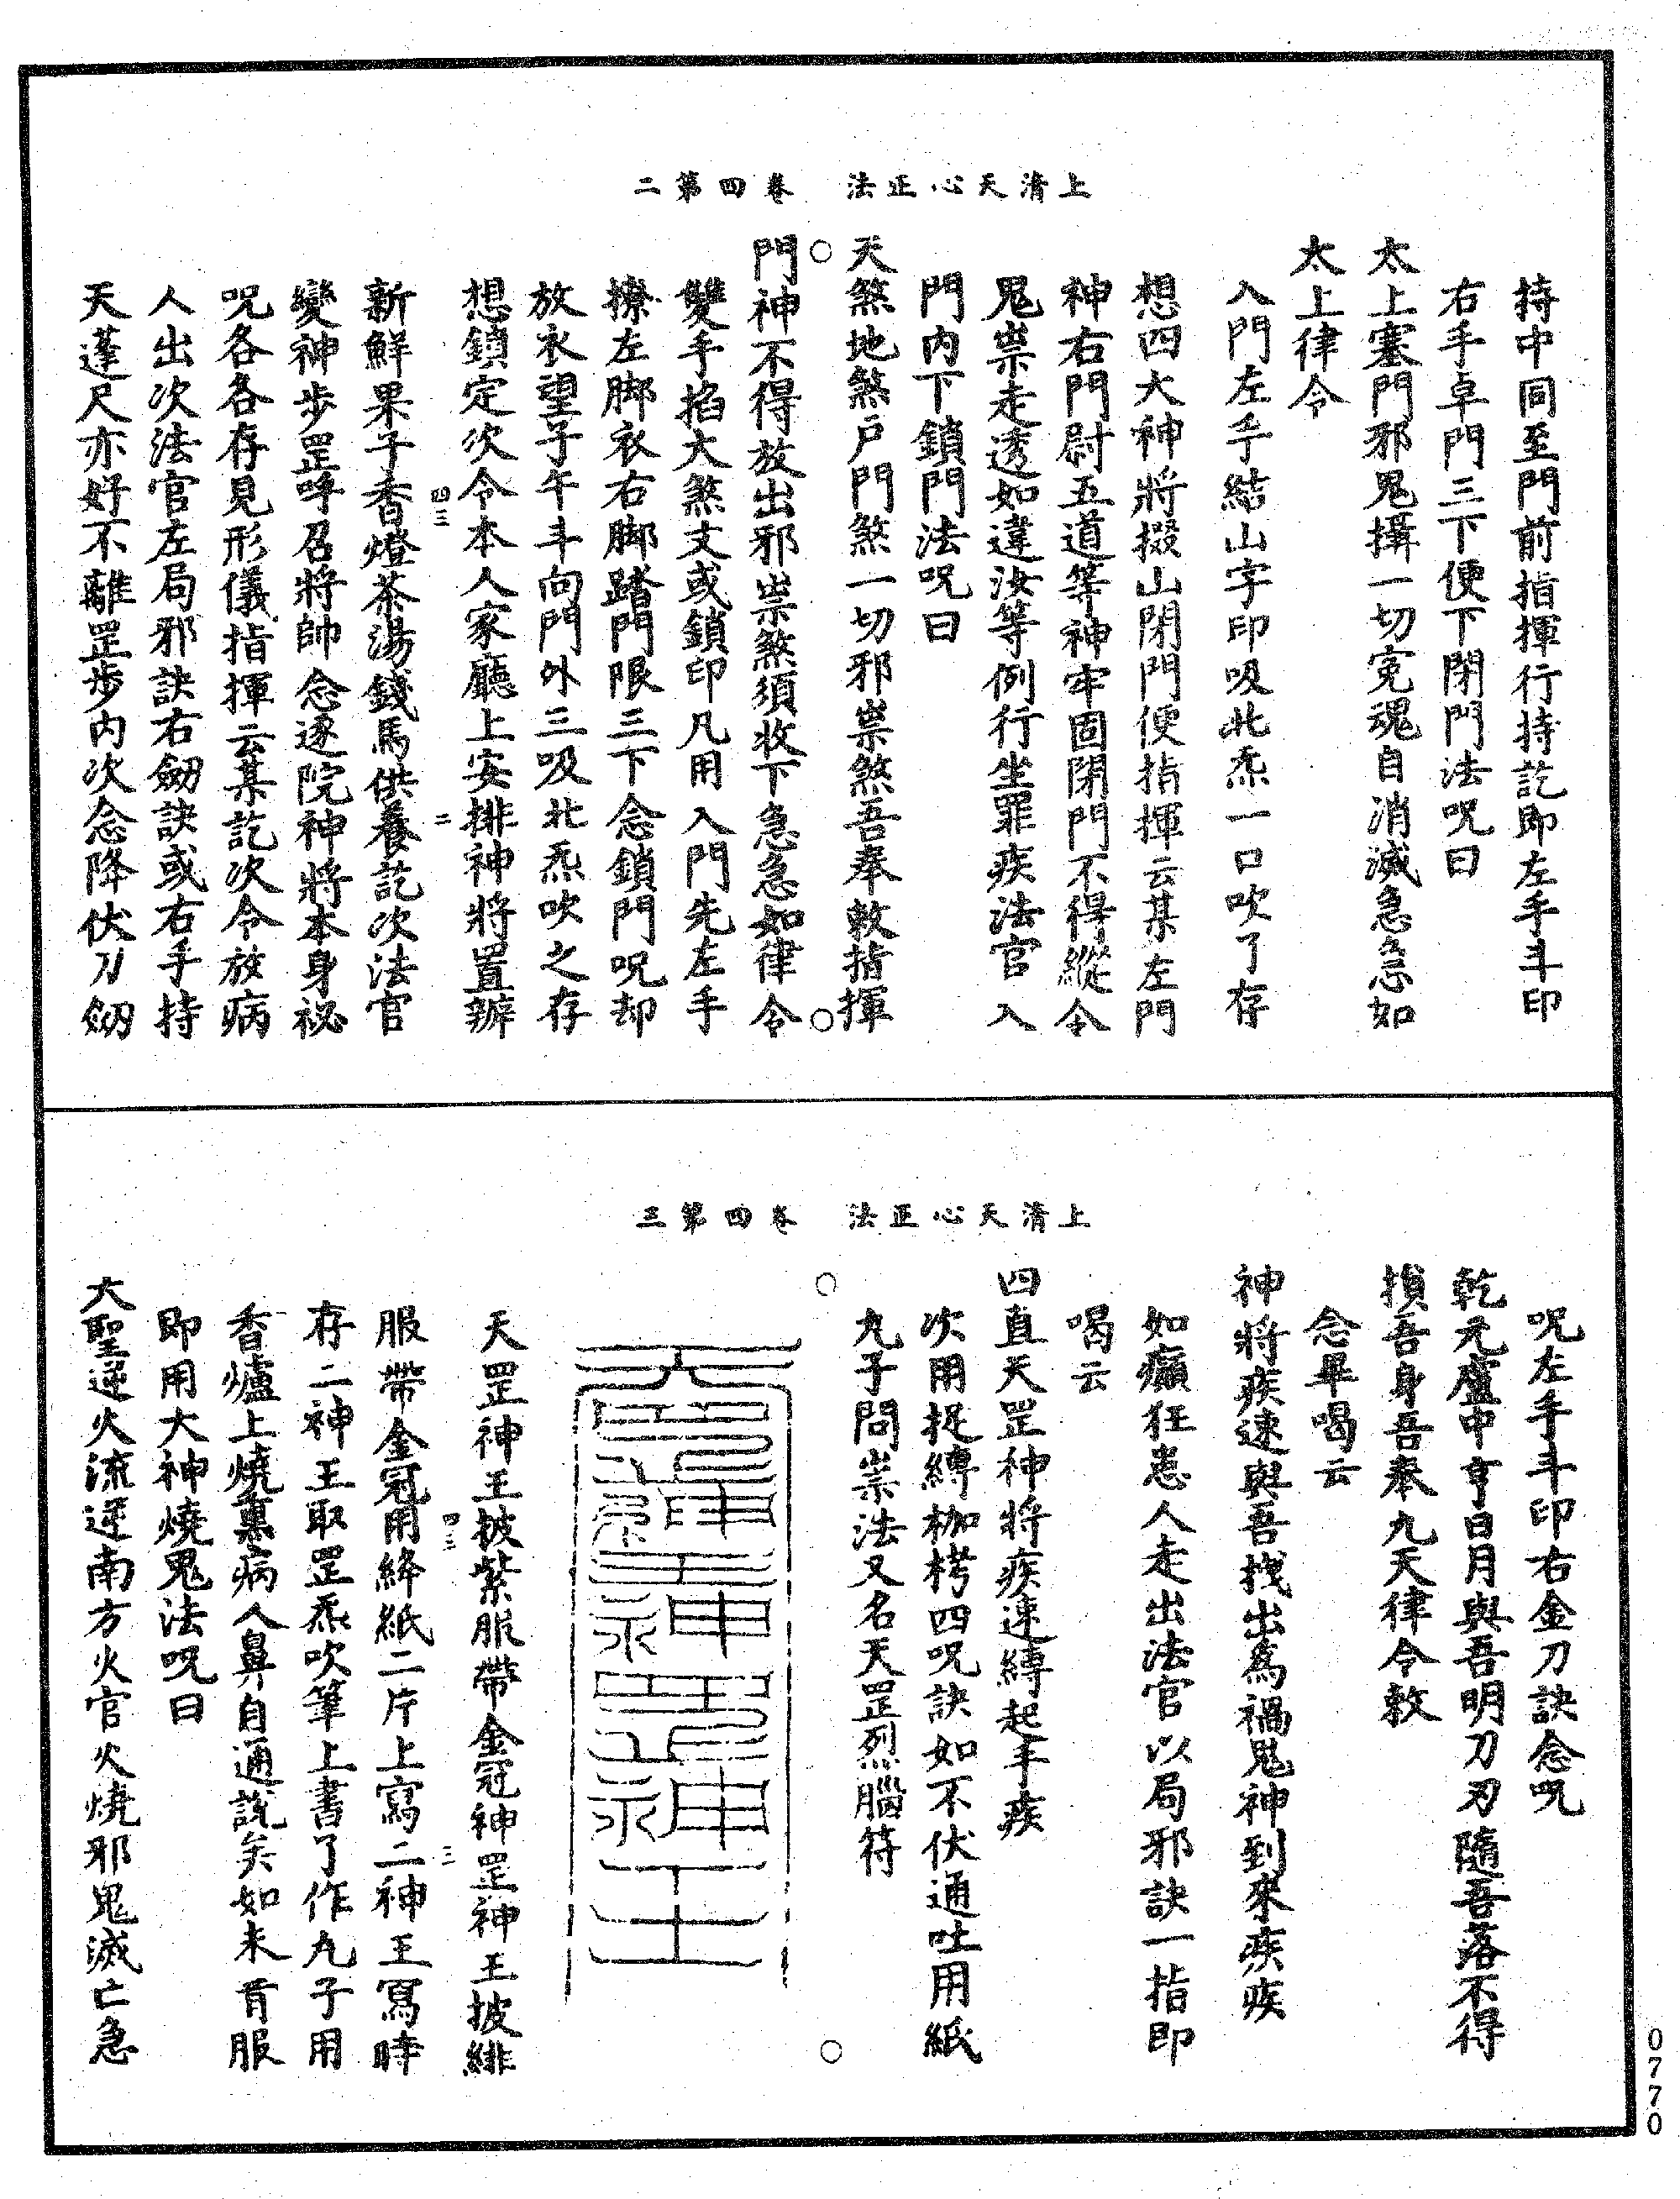 上清天心正法　卷四第二
持中同至門前指揮行持訖即左手斗印
右手卓門三下便下閉門法呪曰
太上塞門邪鬼攝一切寃魂自消滅急急如
太上律令
入門左手結山字印吸北炁一口吹了存
想四大神將掇山閉門便指揮云某左門
神右門尉五道等神牢固閉門不得縱令
鬼祟走透如違汝等例行坐罪疾法官入
門內下鎖門法呪曰
天煞地煞戶門煞一切邪祟煞吾奉敕指揮
門神不得放出邪祟煞須收下急急如律令
雙手掐大煞文或鎖印凡用入門先左手
撩左脚衣右脚踏門限三下念鎖門呪却
放衣望子午斗向門外三吸北炁吹之存
想鎖定次令本人家廳上安排神將置辦
四三　二
新鮮果子香燈茶湯錢馬供養訖次法官
變神步罡呼召將帥念逐院神將本身祕
呪各各存見形儀指揮云某訖次令放病
人出次法官左局邪訣右劒訣或右手持
天蓬尺亦好不離罡步內次念降伏刀劒
上清天心正法　卷四第三
呪左手斗印右金刀訣念呪
乾元廬中亨日月與吾明刀刃隨吾落不得
損吾身吾奉九天律令敕
念畢喝云
神將疾速與吾找出為禍鬼神到來疾疾
如癲狂患人走出法官以局邪訣一指即
喝云
四直天罡神將疾速縛起手疾
次用捉縛枷栲四呪訣如不伏通吐用紙
丸子問祟法又名天罡烈腦符
天罡神王披紫服帶金冠神罡神王披緋
四三　三
服帶金冠用絳紙二片上寫二神王寫時
存二神王取罡炁吹筆上書了作丸子用
香爐上燒熏病人鼻自通說矣如未肯服
即用大神燒鬼法呪曰
大聖逆火流逆南方火官火燒邪鬼滅亡急
0770